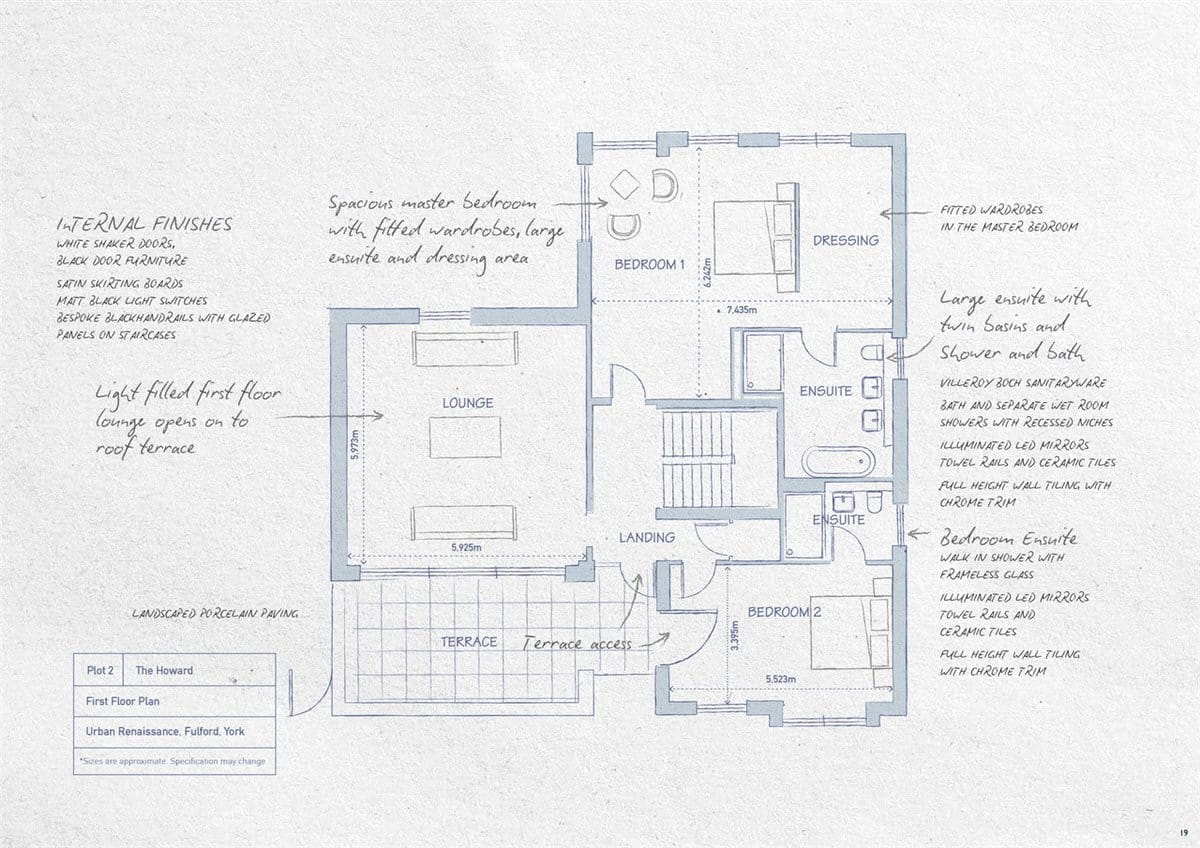 InTERNAL FINISHES
WHITE SHAKER DOORS,
BLACK DOOR FURNITURE
SATIN SKIRTING BOARDS
MATT BLACK LIGHT SWITCHES
BESPOKE BLACKHANDRAILS WITH GLAZED
PANELS ON STAIRCASES
Light filled first floor
lounge opens on to
roof terrace
Spacious master bedroom
with fitted wardrobes, large
ensuite and dressing area
BEDROOM 1
6.242m
7.435m
DRESSING
FITTED WARDROBES
IN THE MASTER BEDROOM
Large ensuite with
twin basins and
Shower and bath
VILLEROY BOCH SANITARYWARE
BATH AND SEPARATE WET ROOM
SHOWERS WITH RECESSED NICHES
ILLUMINATED LED MIRRORS
TOWEL RAILS AND CERAMIC TILES
FULL HEIGHT WALL TILING WITH
CHROME TRIM
ENSUITE
LOUNGE
5.973m
5.925m
LANDING
ENSUITE
Bedroom Ensuite
WALK IN SHOWER WITH
FRAMELESS GLASS
ILLUMINATED LED MIRRORS
TOWEL RAILS AND
CERAMIC TILES
FULL HEIGHT WALL TILING
WITH CHROME TRIM
BEDROOM 2
3.395m
5.523m
LANDSCAPED PORCELAIN PAVING
TERRACE
Terrace access
Plot 2 The Howard
First Floor Plan
Urban Renaissance, Fulford, York
*Sizes are approximate. Specification may change
19